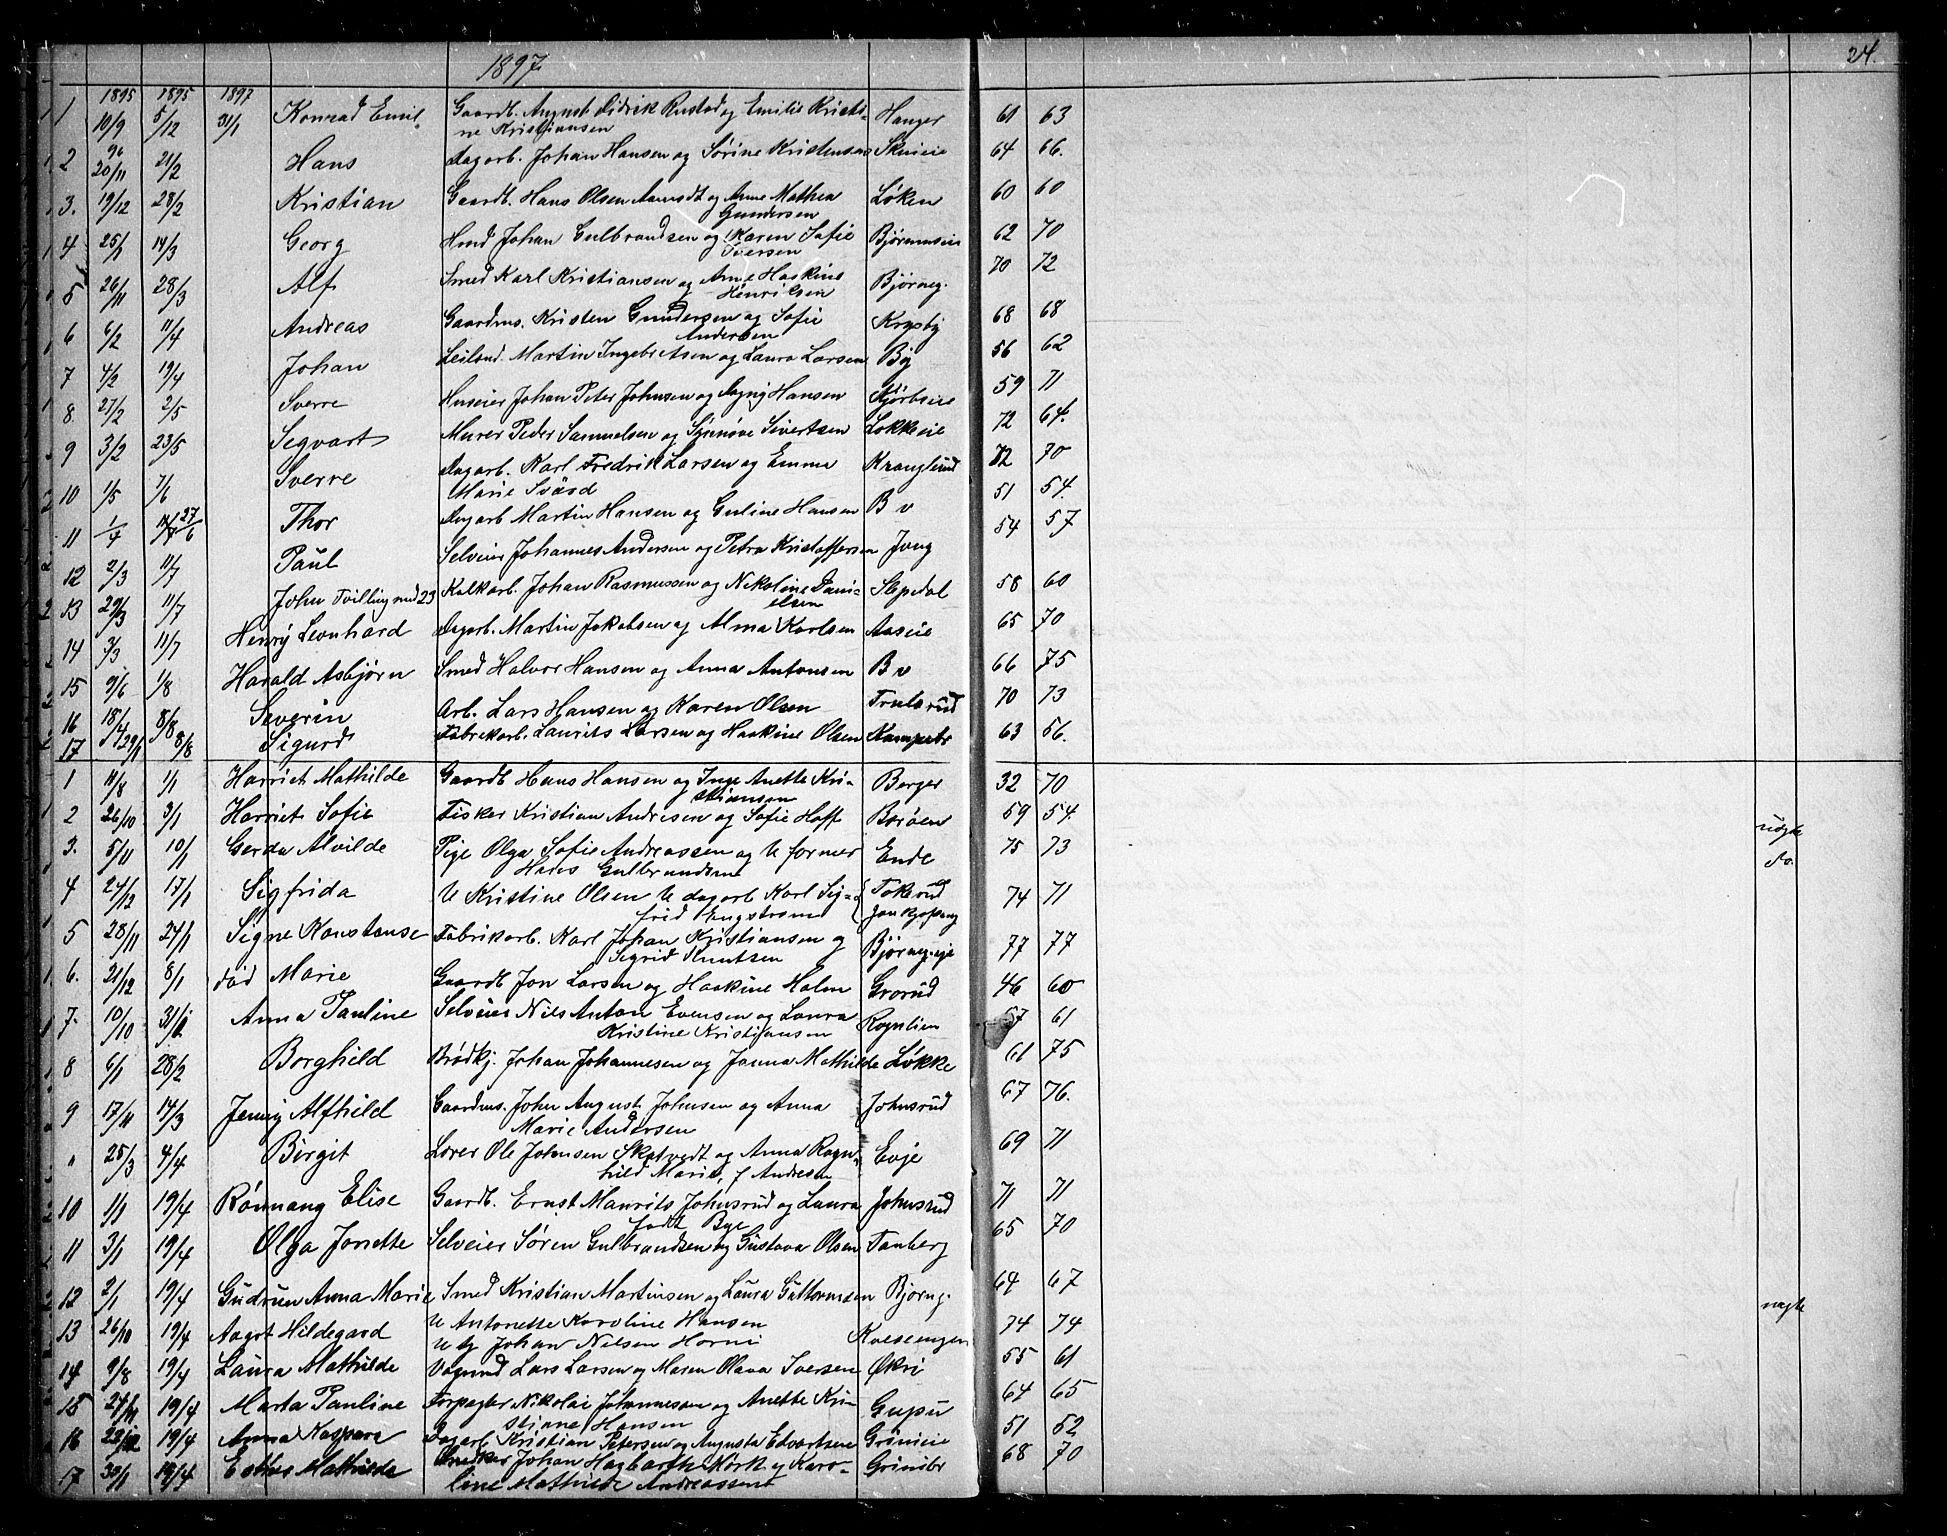 1897.
24.
1895 1895 1897
1 10/9 5/12 31/1 Konrad Emil Gaardb. August Didrik Rustad og Emilie Kristi- Hanger 61 63
ne Kristiansen
96
2 20/11 21/2 Hans Dagarb. Johan Hansen og Sørine Kristensen Skuieie 64 66.
3. 19/12 28/2 Kristian Gaardb. Hans Olsen Aamodt og Anne Mathea Løken 60 60
Gundersen
4 25/1 14/3 Georg Hmd Johan Gulbrandsen og Karen Sofie Bjørumseie 62 70
Iversen
5 26/11 28/3 Alf Smed Karl Kristiansen og Anne Haakine Bjørneg. 70 72
Henriksen
6 6/2 11/4 Andreas Gaardms. Kristen Gundersen og Sofie Krysby 68 68
Andersen
7 4/2 19/4 Johan Leilend. Martin Ingebretsen og Laura Larsen By 56 62
8. 27/2 2/5 Sverre Huseier Johan Peter Johnsen og Hansen 59 71
9 3/2 23/5 Segvart Murer Peder Samuelsen og Synnøve Sivertsen Løkkeeie 72 64.
10 1/5 7/6 Sverre Dagarb. Karl Fredrik Larsen og Emma Kranglerud 72 70
Marie Svärd
11 1/4 27/6 Thor Dagarb Martin Hansen og Guline Hansen B v 51 54.
12 2/3 11/7 Paul Selveier Johannes Andersen og Petra Kristoffersen Jong 54 57
13 29/3 11/7 John Tvilling med 23 Kalkarb. Johan Rasmussen og Nikoline Dani- Slependal 58 60
elsen
14 3/3 11/7 Henry Leonhard Dagarb. Martin Jakobsen og Alma Karlsen Aaseie 65 70
15 9/6 1/8 Harald Asbjørn Smed Halvor Hansen og Anna Antonsen B v 66 75
16 18/4 8/8 Severin Arb. Lars Hansen og Karen Olsen Trulsrud 70 73
17 29/1 8/8 Sigurd Fabrikarb. Laurits Larsen og Haakine Olsen Kampebr 63 56.
1 11/8 1/1 Harriet Mathilde Gaardb Hans Hansen og Inge Anette Kri- Berger 32 70
stiansen
2 26/10 3/1 Harriet Sofie Fisker Kristian Andresen og Sofie Hoff Borøen 59 54.
3. 5/11 10/1 Gerda Alvilde Pige Olga Sofie Andreassen og U former Ende 75 73 uægte
Hans Gulbrandsen
4 24/12 17/1 Sigfrida U Kristine Olsen U dagarb Karl Sig- Tokerud 74 71 do.
frid Engstrøm Jønkjøping
5 28/11 24/1 Signe Konstanse Fabrikarb. Karl Johan Kristiansen og Bjørneg.eje 77 77
Sigrid Knutsen
6. 21/12 8/1 død Marie Gaardb Jon Larsen og Haakine Holm Grorud 46 60
7. 10/10 31/1 Anna Pauline Selveier Nils Anton Evensen og Laura Rognlien 57 61
Kristine Kristiansen
8 6/1 28/2 Borghild Brødkj. Johan Johannesen og Janna Mathilde Løkke 61 75
9 17/11 14/3 Jenny Alfhild Gaardms. John August Johnsen og Anna Johnsrud 67 76.
Marie Andersen
" 25/3 4/4 Birgit Lærer Ole Johnsen Skotvedt og Anna Ragn- Evje 69 71
hild Marie, f Andresen
10 1/1 19/4 Rønnaug Elise Gaardb. Ernst Maurits Johnsrud og Laura Johnsrud 71 71
født Bye
11 3/1 19/4 Olga Jonette Selveier Søren Gulbrandsen og Gustava Olsen Tanberg 65 70
12 2/1 19/4 Gudrun Anna Marie Smed Kristian Martinsen og Laura Guttormsen Bjørng. 64 67
13 26/10 19/4 Aagot Hildegard U Antonette Karoline Hansen Kveseengen 74 74 uægte
U Johan Nielsen Horni
14 9/8 19/4 Laura Mathilde Vognmd Lars Larsen og Maren Olava Iversen Økri 55 61
15 19/4 Marta Pauline Forpagter Nikolai Johannesen og Anette Kri- 64 65
stiane Hansen
16 22/12 19/4 Anna Kaspara Dagarb. Kristian Petersen og Augusta Edvartsen Grinieie 51 52
17 30/1 19/4 Ester Mathilde Snedker Johan Hagbarth Mørk og Karo- Grinibr 68 70
line Mathilde Andreassen